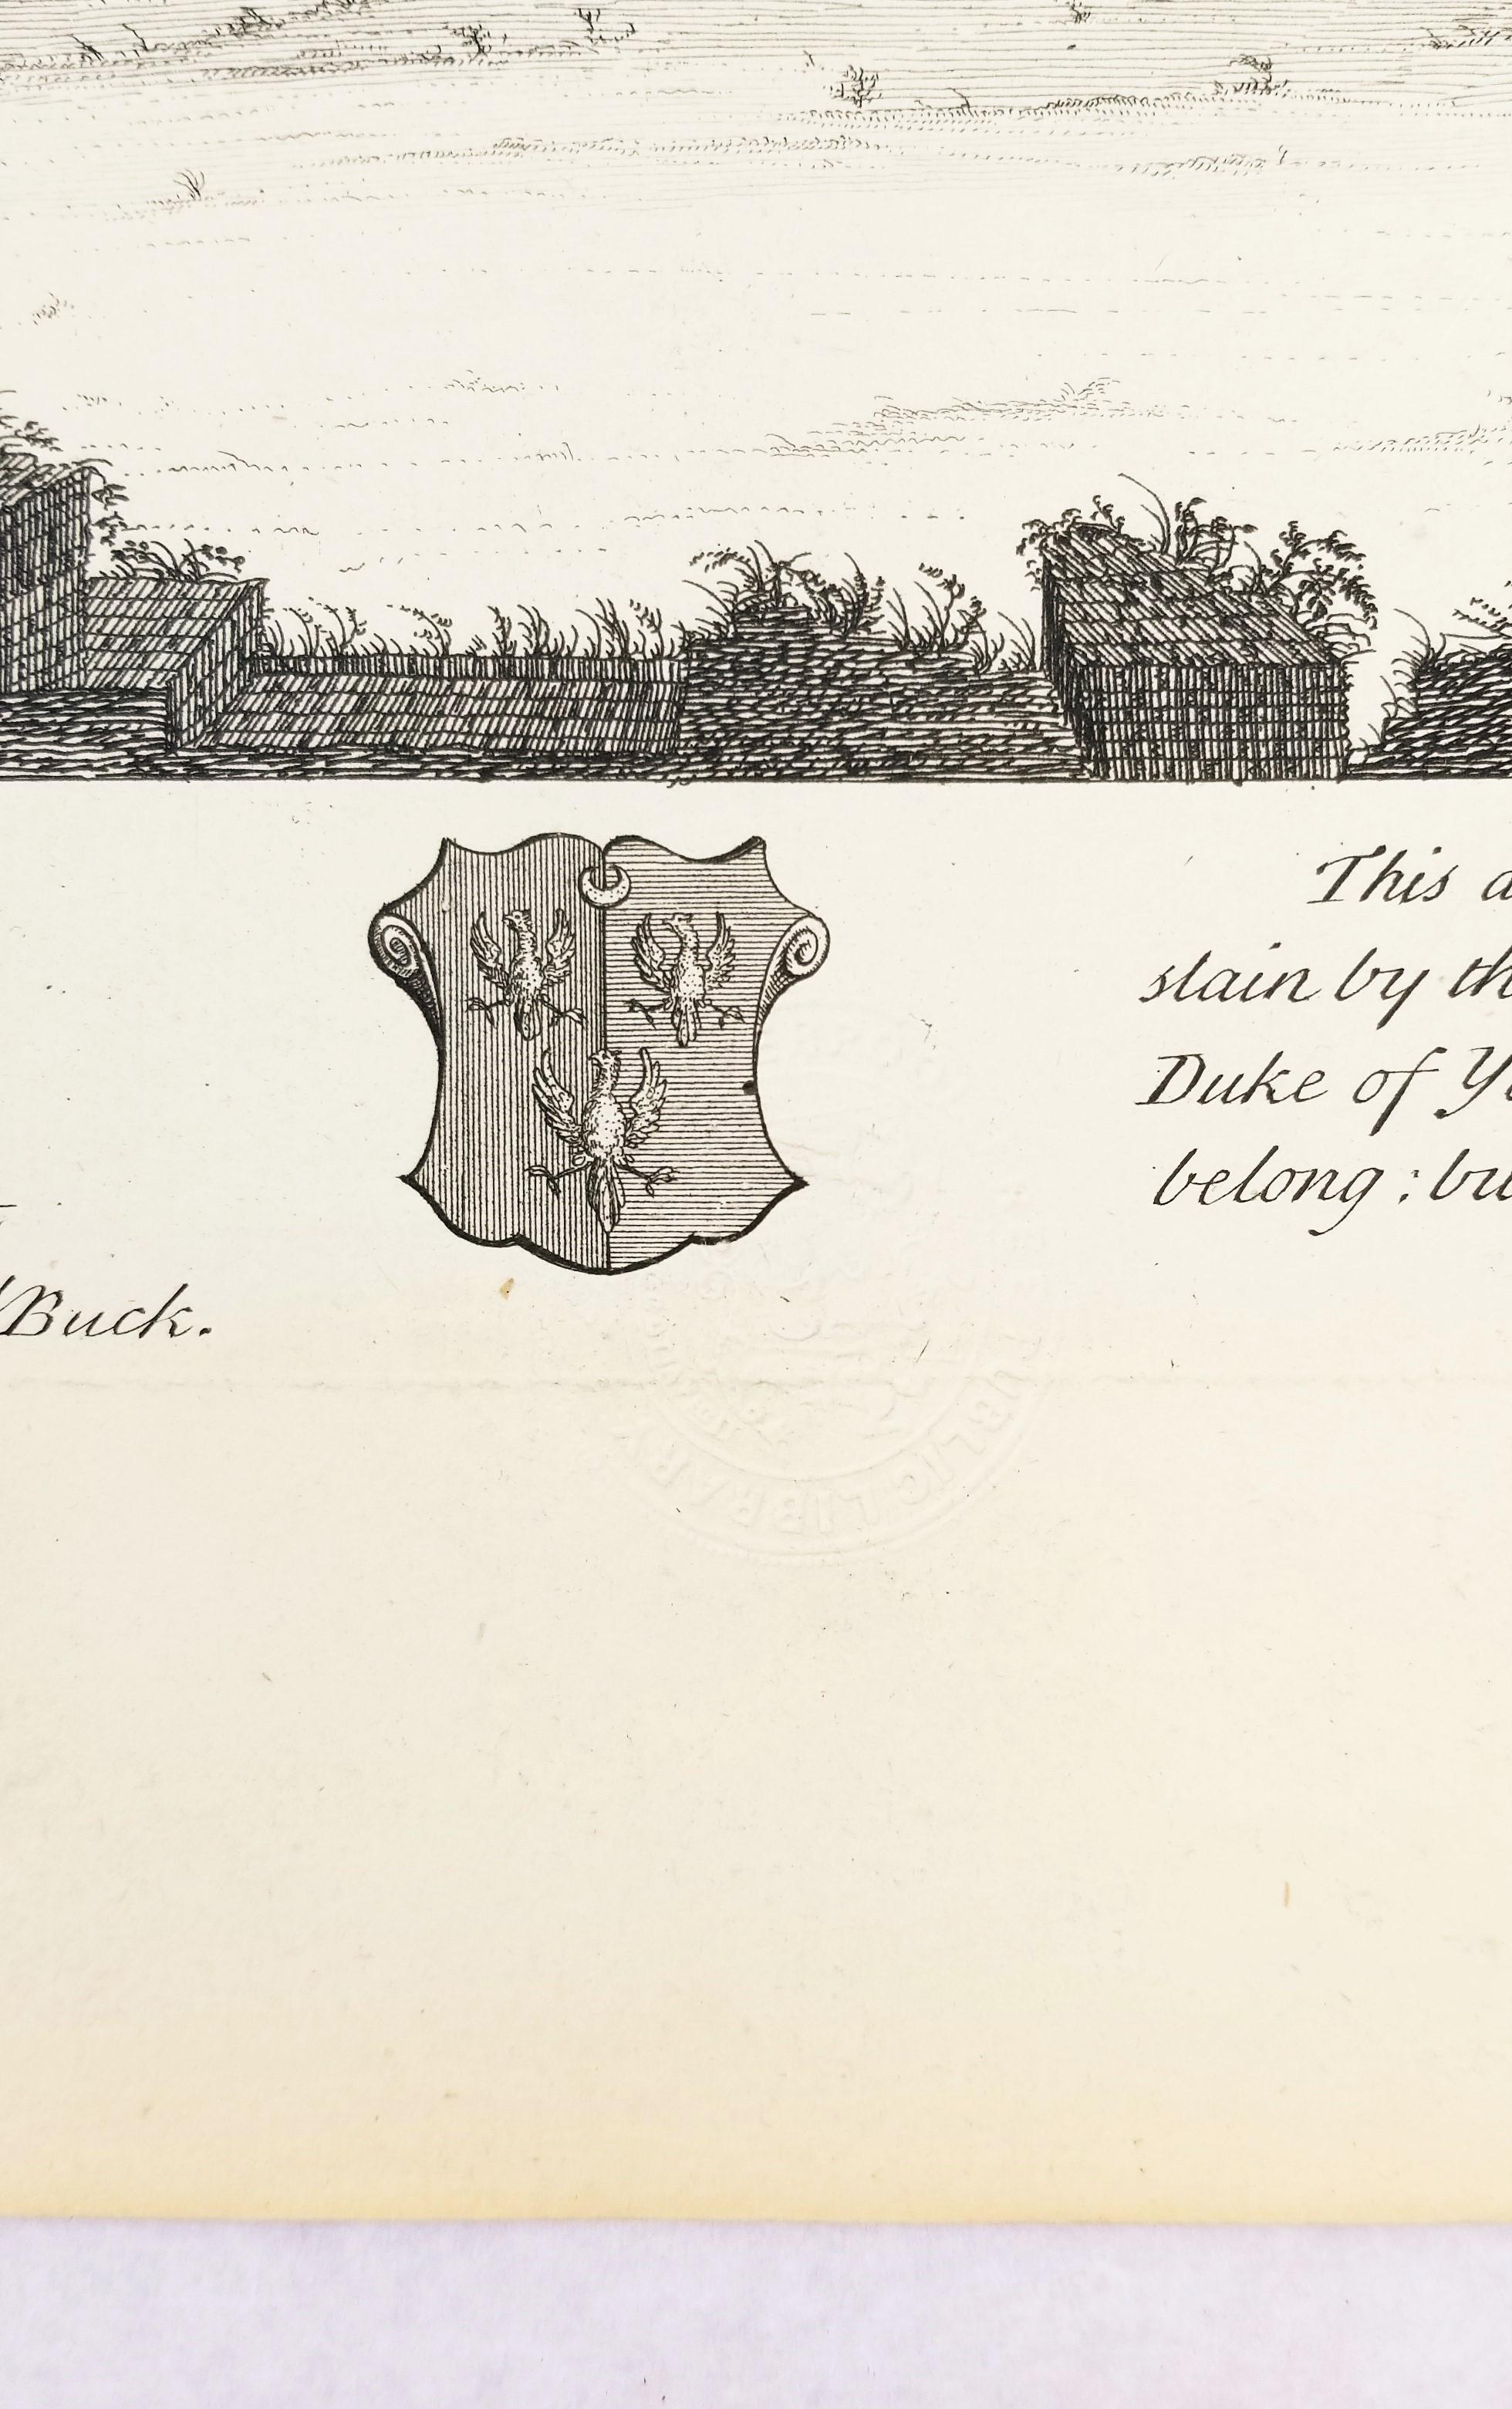 This
slain by
Duke of
belong : bu
Buck.
PUBLIC LIBRARY